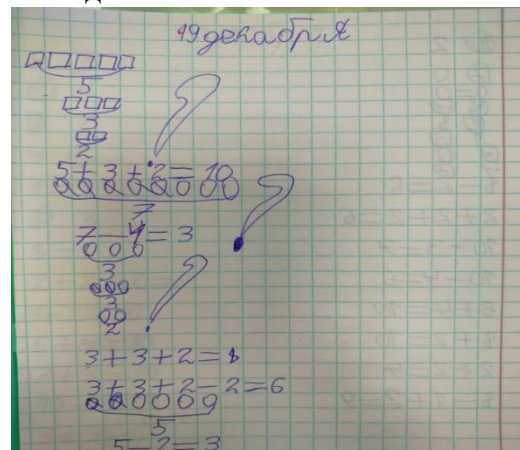 19 декабря
5
3
2
5 + 3 + 2 = 10
7
7 - 4 = 3
3
3
2
3 + 3 + 2 = 8
3 + 3 + 2 - 2 = 6
5
5 - 2 = 3